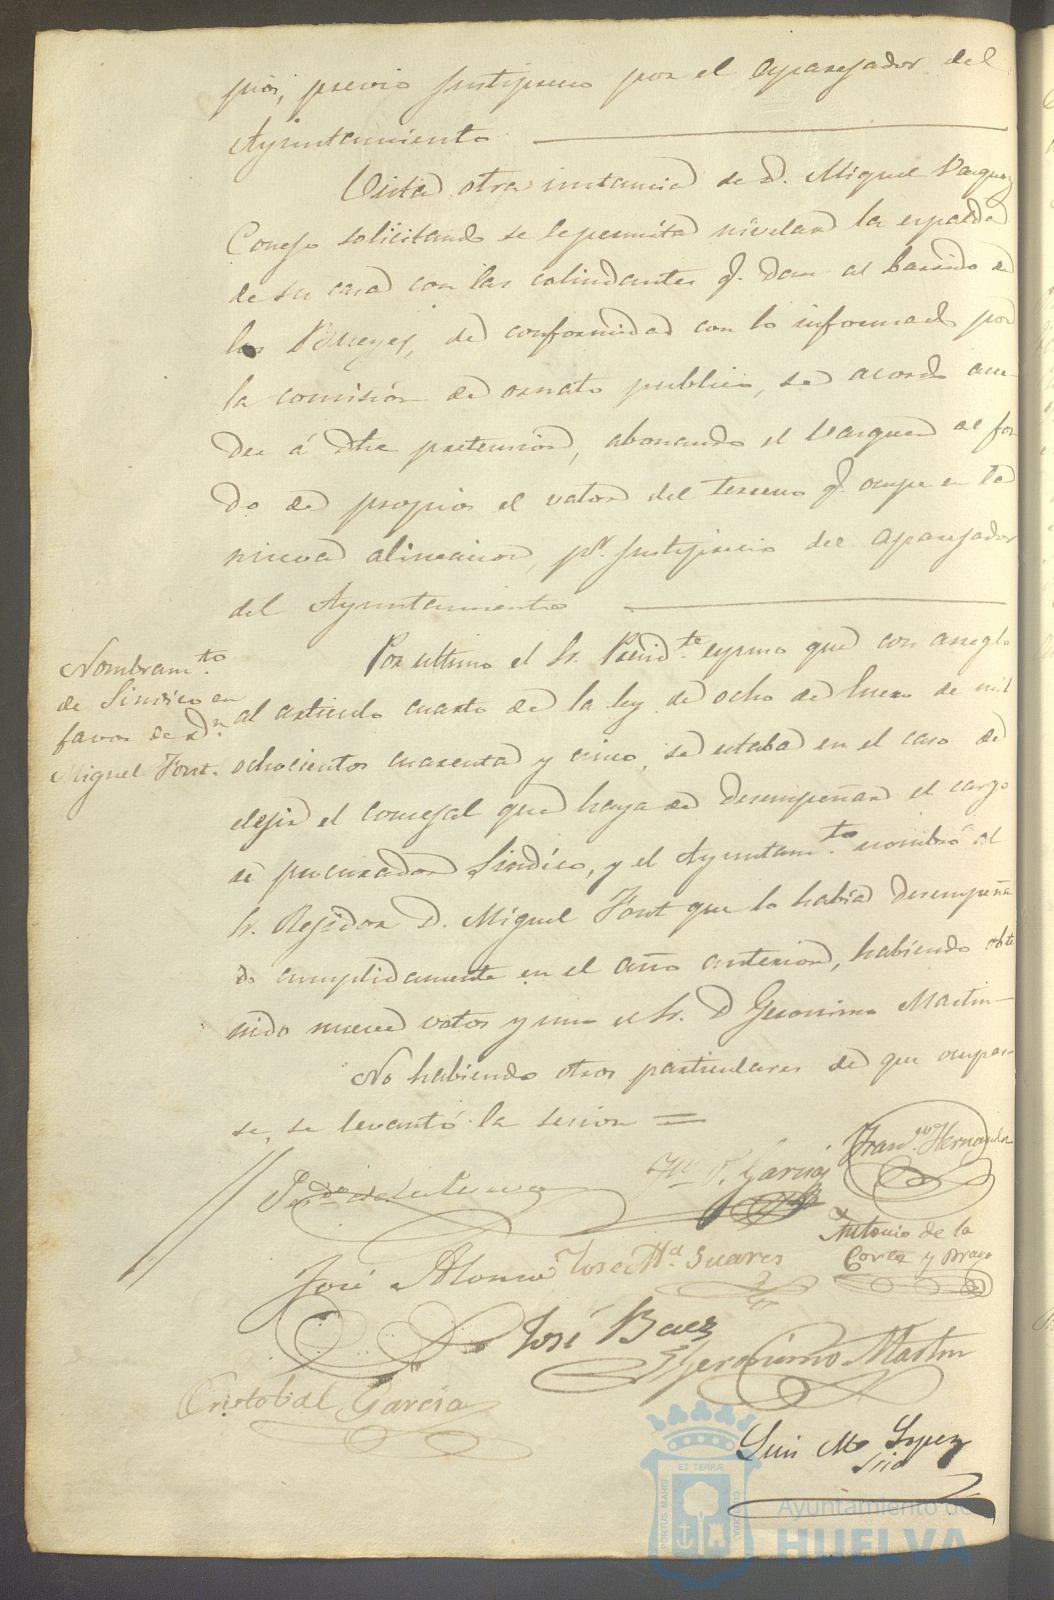 pios, previo justiprecio por el Aparejador del
Ayuntamiento
Vista otra instancia de D. Miguel Vazquez
Conejo solicitando se le permita nivelar la espalda
de su casa con las colindantes q. dan al barrido de
los Bueyes, de conformidad con lo informado por
la comisión de ornato publico, se acordó acce-
der á dha pretension, abonando el Vazquez al fon
do de propios el valor del terreno q. ocupe en la
nueva alineacion, pr. justiprecio del aparejador
del Ayuntamiento
Nombramto.
de Sindico en
favor de Dn.
Miguel Font.
Por ultimo el Sr. Presidte. espuso que con arreglo
al articulo cuarto de la ley de ocho de Enero de mil
ochocientos cuarenta y cinco, se estaba en el caso de
elejir el concejal que haya de desempeñar el cargo
de procurador Sindico, y el Ayuntamto. nombró al
Sr. Rejidor D. Miguel Font que lo habia desempeña
do cumplidamente en el año anterior, habiendo obte
nido nueve votos y uno el Sr. D Geronimo Martin
No habiendo otros particulares de que ocupar-
se, se levantó la sesion =
de la Cueva
F. Garcia
Franco. Hernandez
José Alonso
Jose Ma. Suares
Antonio de la
Corte y Bravo
José Baez
Geronimo Martin
Cristobal Garcia
Luis Ma Lopez
Srio
PORTUS MARIS ET TERRAE CUSTODIA
Ayuntamiento de
HUELVA